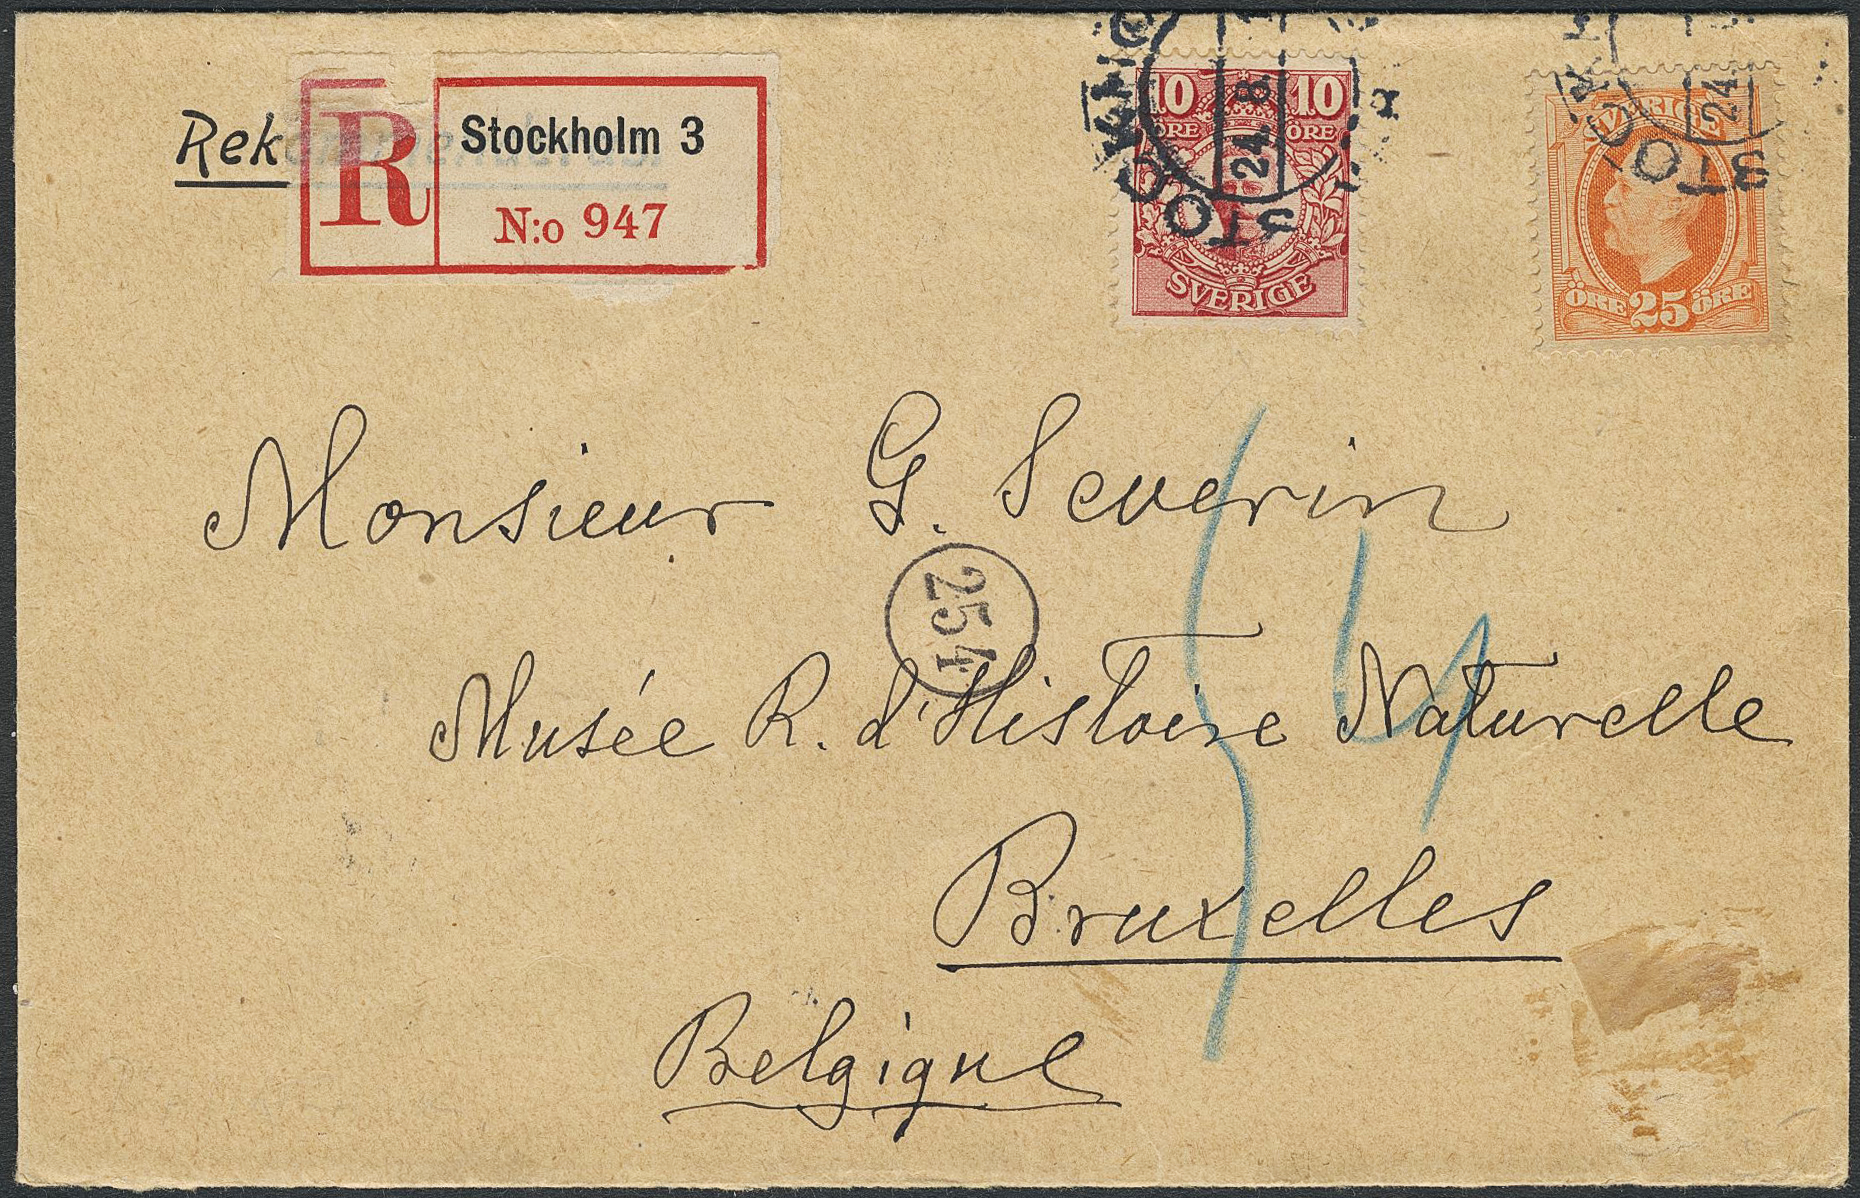 Rek
R
Stockholm 3
N:o 947
10 10
ÖRE ÖRE
SVERIGE
24. 8.
STOCKHOLM
SVERIGE
ÖRE 25 ÖRE
24
STO
Monsieur G. Severin
254
Musée R. d'Histoire Naturelle
Bruxelles
Belgique